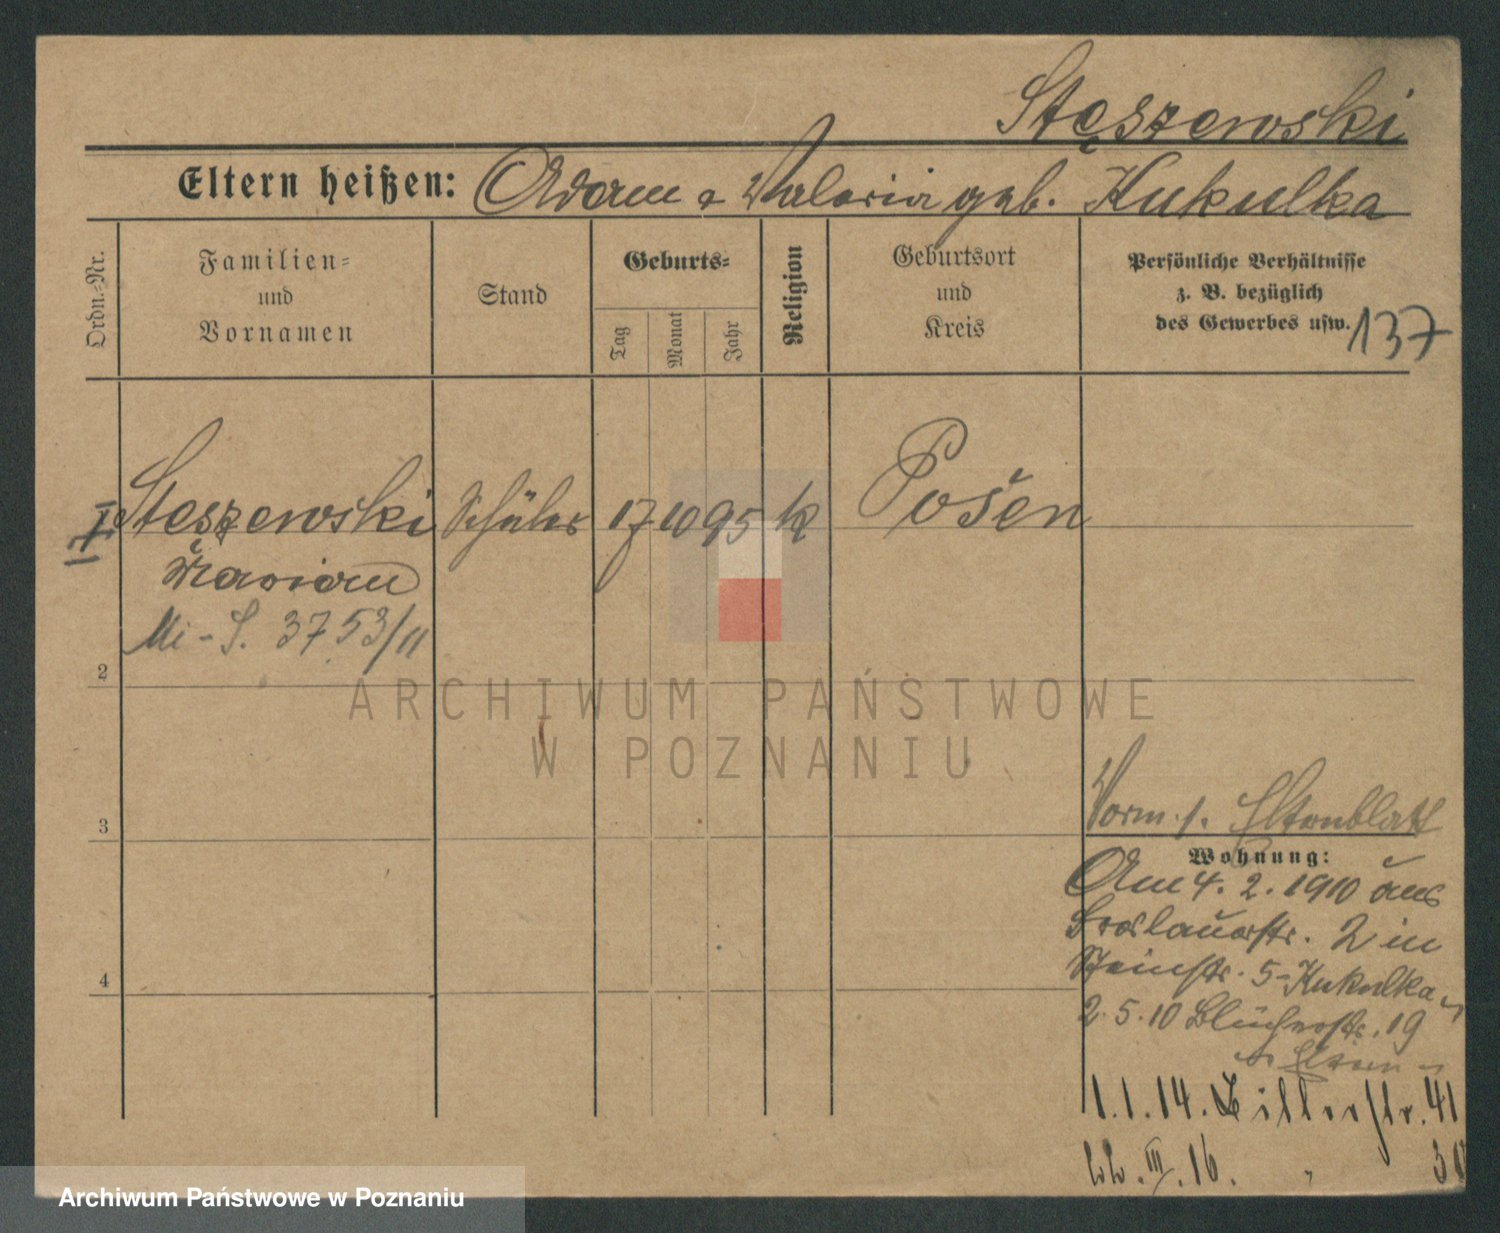 Stęszewski
Eltern heißen: Adam & Valeria geb. Kukulka
Ordn.-Nr.
Familien-
und
Vornamen
Stand
Geburts-
Tag
Monat
Jahr
Religion
Geburtsort
und
Kreis
Persönliche Verhältnisse
z. B. bezüglich
des Gewerbes usw.
137
Steszewski Schüler 17 10 95 k Posen
Marian
Mi - S. 3753/11
2
3
4
ARCHIWUM PAŃSTWOWE
W POZNANIU
Vorm. s. Elternblatt
Wohnung:
Am 4. 2. 1910 aus
Breslauerstr. 2 in
Steinstr. 5 - Kukulka
2. 5. 10 Blücherstr. 19
Eltern
1. 1. 14. 41
III. 16. "
Archiwum Państwowe w Poznaniu